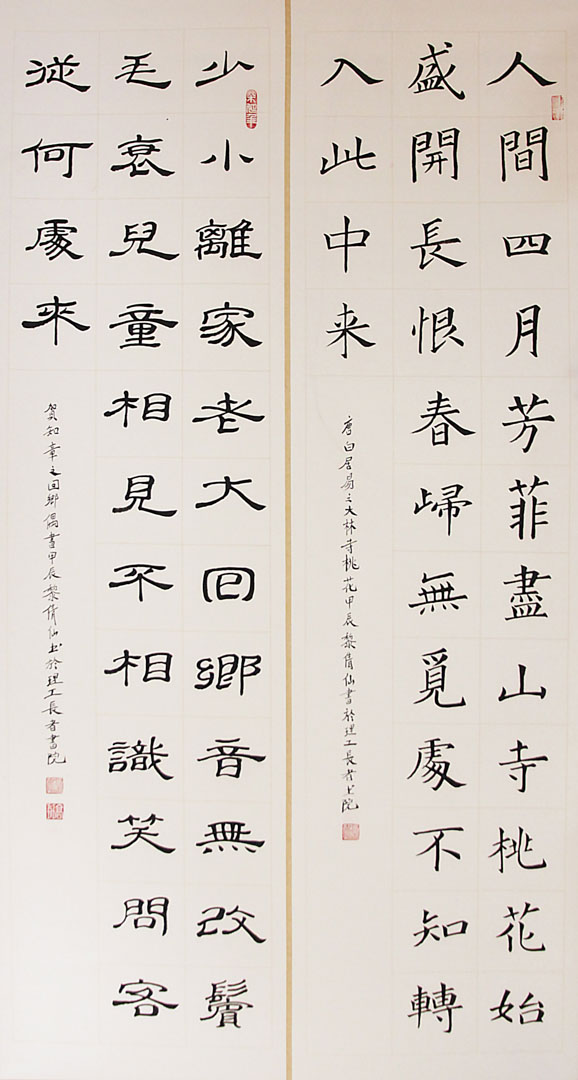 人間四月芳菲盡山寺桃花始
盛開長恨春歸無覓處不知轉
入此中来
唐白居易之大林寺桃花甲辰黎倩仙書於理工長者书院
少小離家老大回鄉音無改鬢
毛衰兒童相見不相識笑問客
從何處來
賀知章之回鄉偶書甲辰黎倩仙书於理工長者書院